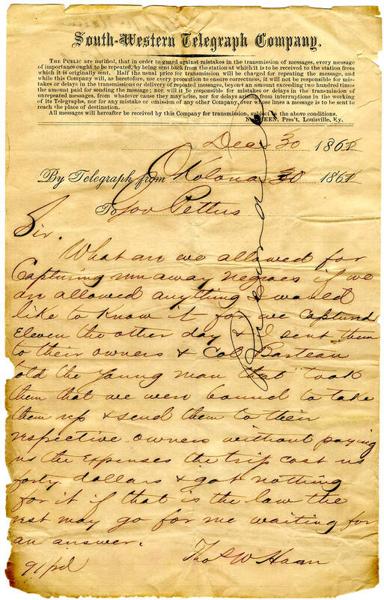 South-Western Telegraph Company.
THE PUBLIC are notified, that in order to guard against mistakes in the transmission of messages, every message
of importance ought to be repeated, by being sent back from the station at which it is to be received to the station from
which it is originally sent. Half the usual price for transmission will be charged for repeating the message, and
while this Company will, as heretofore, use every precaution to ensure correctness, it will not be responsible for mis-
takes or delays in the transmission or delivery of repeated messages, beyond an amount exceeding two hundred times
the amount paid for sending the message; nor will it be responsible for mistakes or delays in the transmission of
unrepeated messages, from whatever cause they may arise, nor for delays arising from interruptions in the working
of its Telegraphs, nor for any mistake or omission of any other Company, over whose lines a message is to be sent to
reach the place of destination.
All messages will hereafter be received by this Company for transmission, subject to the above conditions.
GREEN, Pres't, Louisville, Ky.
Dec 30 1862
By Telegraph from Okolona 30 1862
To Gov Pettus
Sir.
What are we allowed for
Capturing runaway negroes if we
are allowed anything I would
like to know it for we captured
Eleven the other day & I sent them
to their owners & Col Barteau
told the young man that took
them that we were bound to take
them up & send them to their
respective owners without paying
us the expenses the trip cost us
forty dollars & got nothing
for it if that is the law the
rest may go for me waiting for
an answer.
Thos W Haan
91 pd